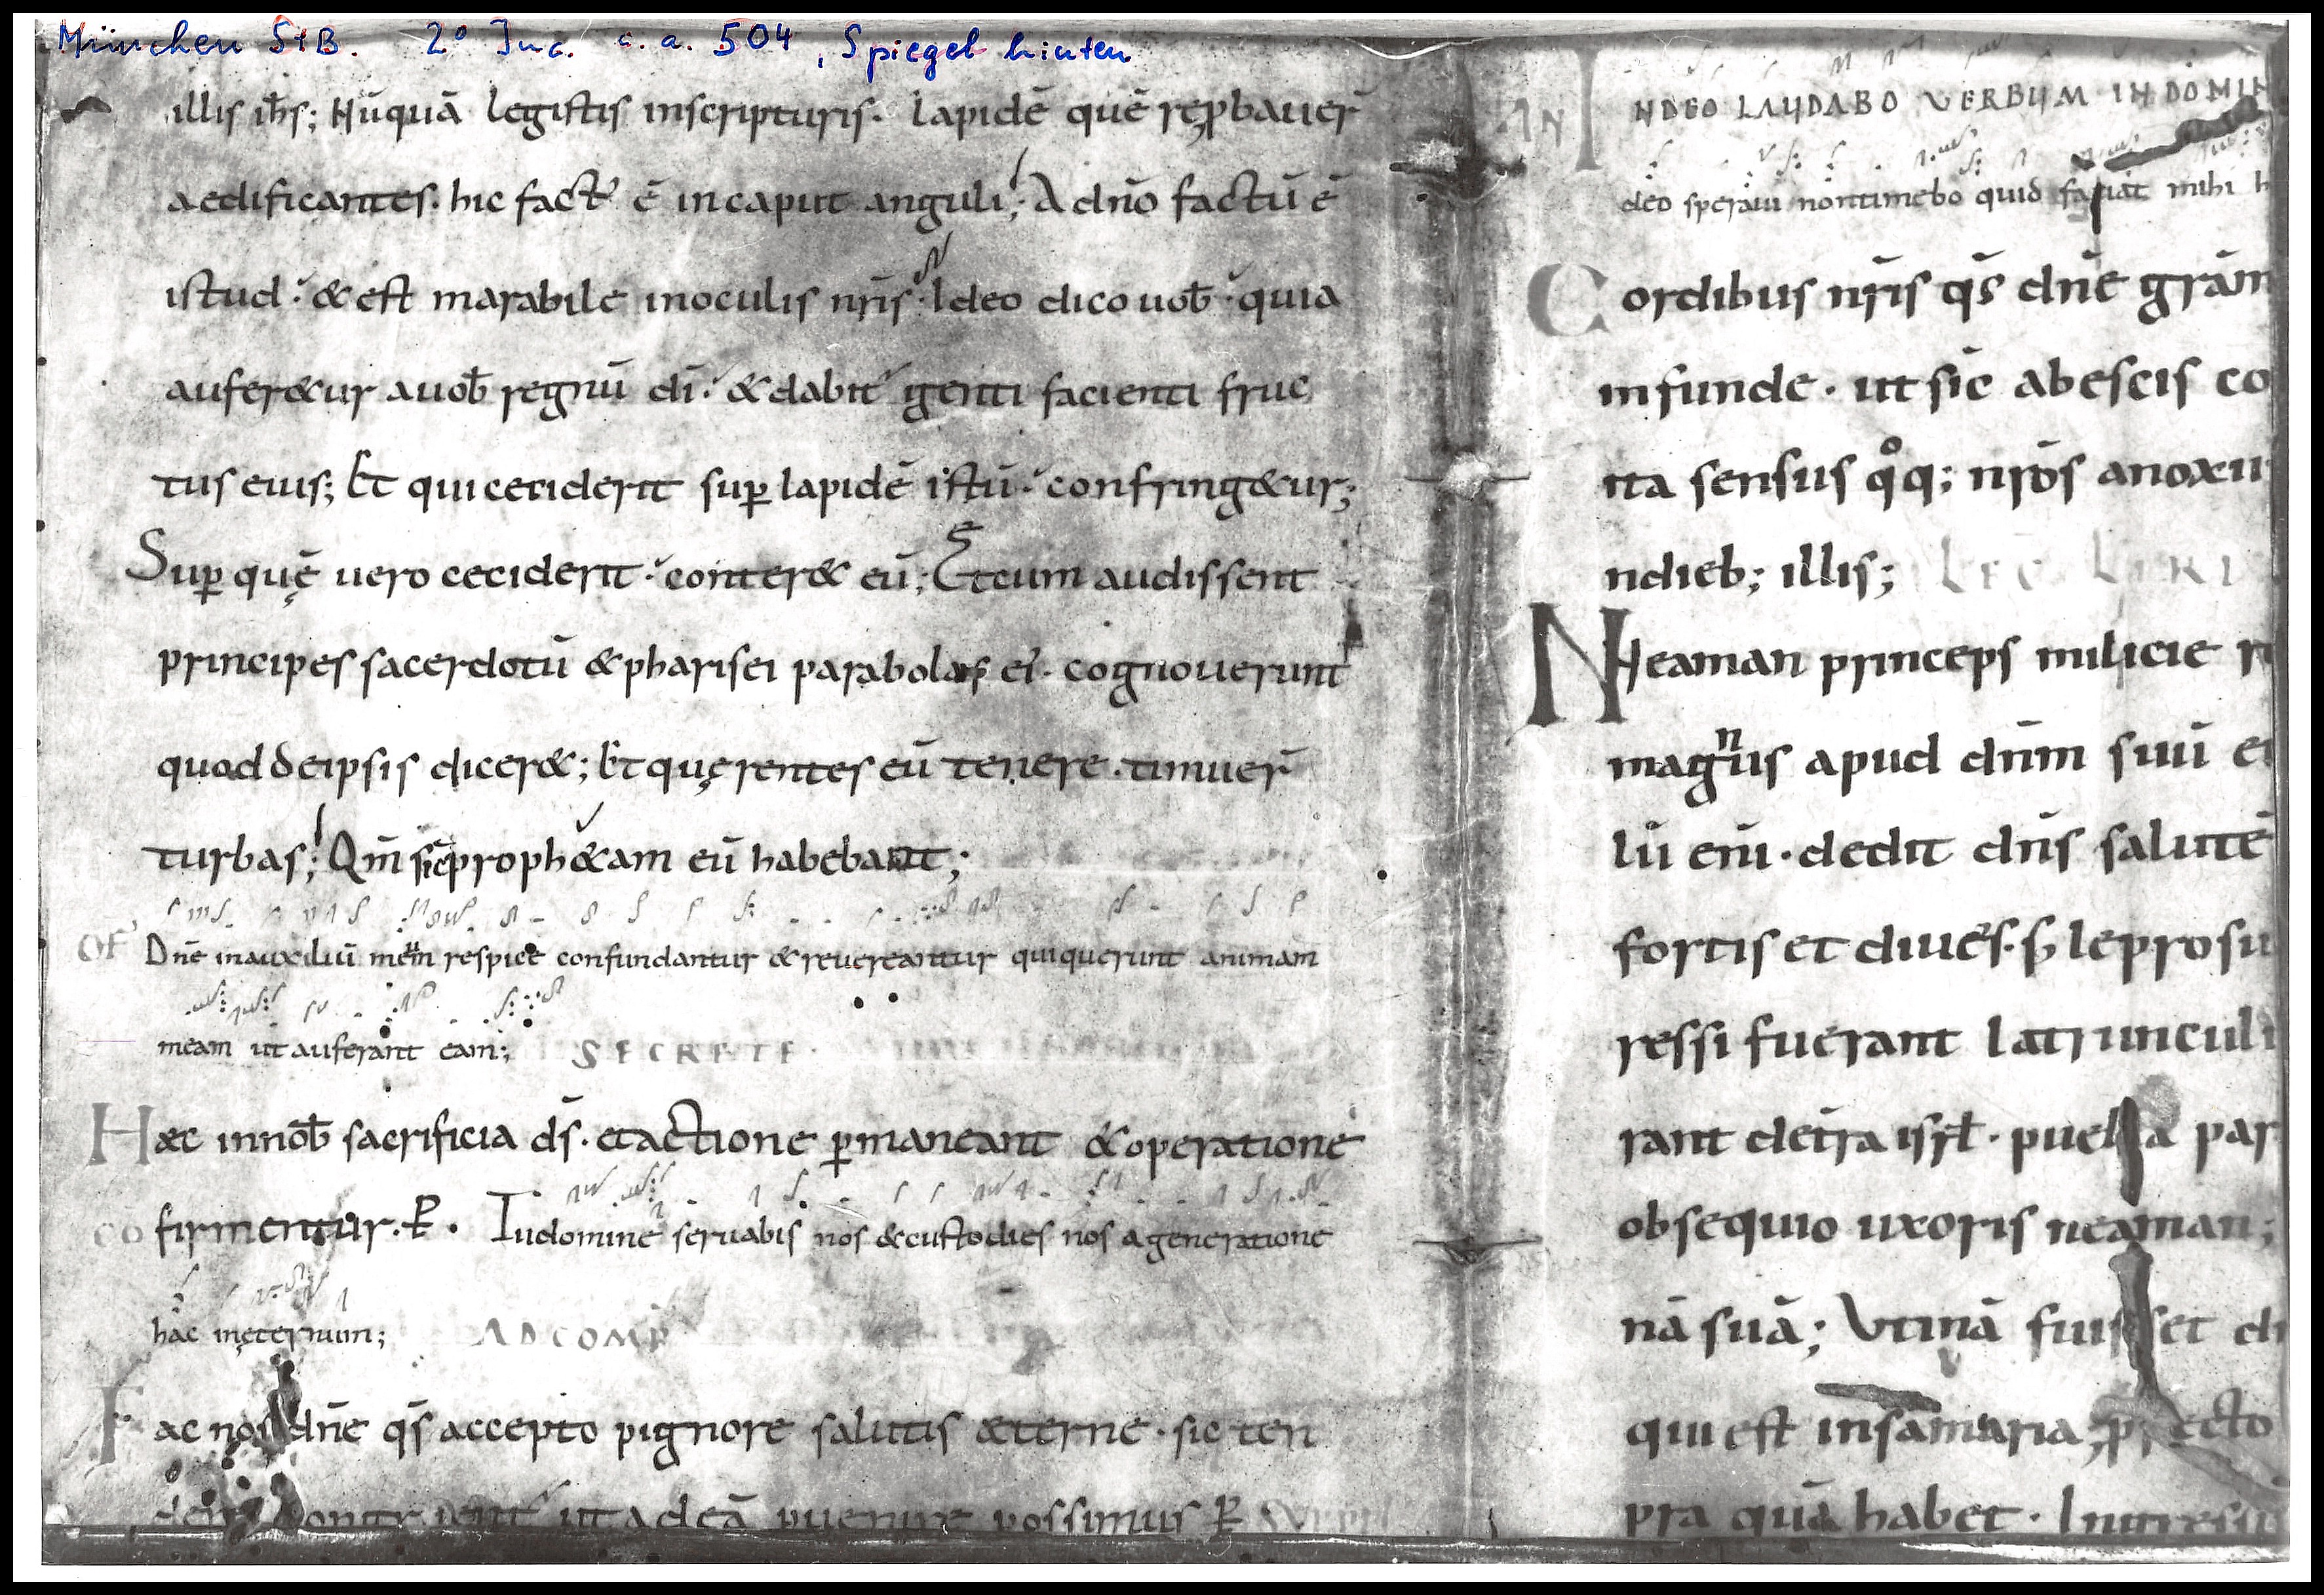 München StB. 2° Inc. c. a. 504, Spiegel hinten
illis ih̄s; Nūquā legistis inscripturis. lapidē quē rep̱bauer̄
aedificantes. hic fact᷒ ē incaput anguli; A dn̄o factū ē
istud. & est marabile inoculis nr̄is. Ideo dico uob̄. quia
aufer&ur auob̄ regnū dī. & dabit᷒ genti facienti fruc
tus eius; Et qui ceciderit sup̱ lapidē istū. confring&ur;
Sup̱ quę̄ uero ceciderit. conter& eū; Et cum audissent
principes sacerdotū & pharisei parabolas ei᷒. cognouerunt
quod deipsis dicer&; Et quęrentes eū tenere. timuer̄
turbas; Qm̄ sic proph&am eū habebant;
OF Dn̄e inauxiliū meū respice confundantur & reuereantur qui querunt animam
meam ut auferant eam; SECRETE.
Haec innob̄ sacrificia dn̄s. et actione p̱maneant & operatione
firmentur. P̱.
CO Tu domine seruabis nos & custodies nos a generatione
hac inęternum; AD COMP̄
Fac nos dn̄e qs̄ accepto pignore salutis æterne. sic ten
ut ad eā p̱uenire possimus P̱
AN IN DEO LAUDABO VERBUM IN DOMIN
deo speraui non timebo quid faciat mihi h
Cordibus nr̄is qs̄ dn̄e gr̄am
infunde. ut sic abescis co
ita sensus qͦq; nr̄os anoxii
ndieb; illis; LEC LIBRI
Neaman princeps milicie r
magnus apud dn̄m suū et
lū enī. dedit dn̄s salutē
fortis et diues. s; leprosu
ressi fuerant latrunculi
rant detr̄a isrl̄. puella par
obsequio uxoris neaman;
nā suā; Utinā fuisset di
qui est insamaria, p̱fecto
pra quā habet. Ingressu